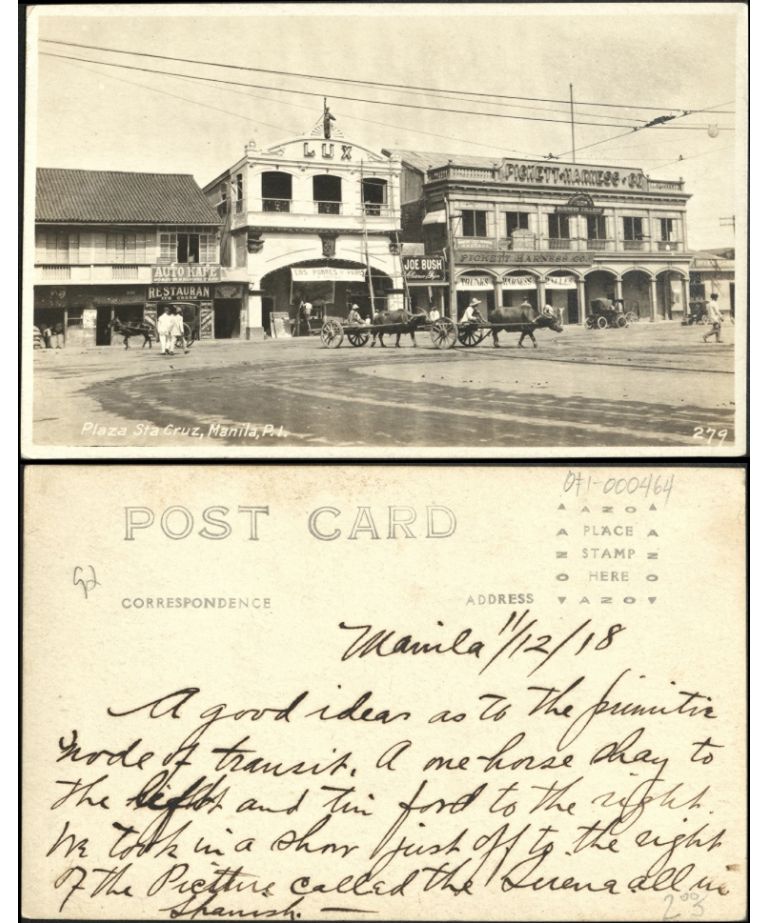 LUX
PICKETT-HARNESS-CO
PICKETT HARNESS CO.
JOE BUSH
AUTO KAFE
RESTAURAN
TRUNKS HARNESS
Plaza Sta Cruz, Manila, P.I.
279
071-000464
POST CARD
AZO
PLACE
STAMP
HERE
AZO
CORRESPONDENCE
ADDRESS
Manila 11/12/18
A good idear as to the primitive
mode of transit. A one-horse shay to
the left and tin ford to the right.
We took in a show just off to the right
of the Picture called the Surena all in
Spanish. —